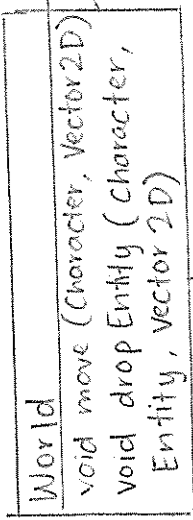 World
void move (Character, Vector2D)
void drop Entity (character,
Entity, vector 2D)